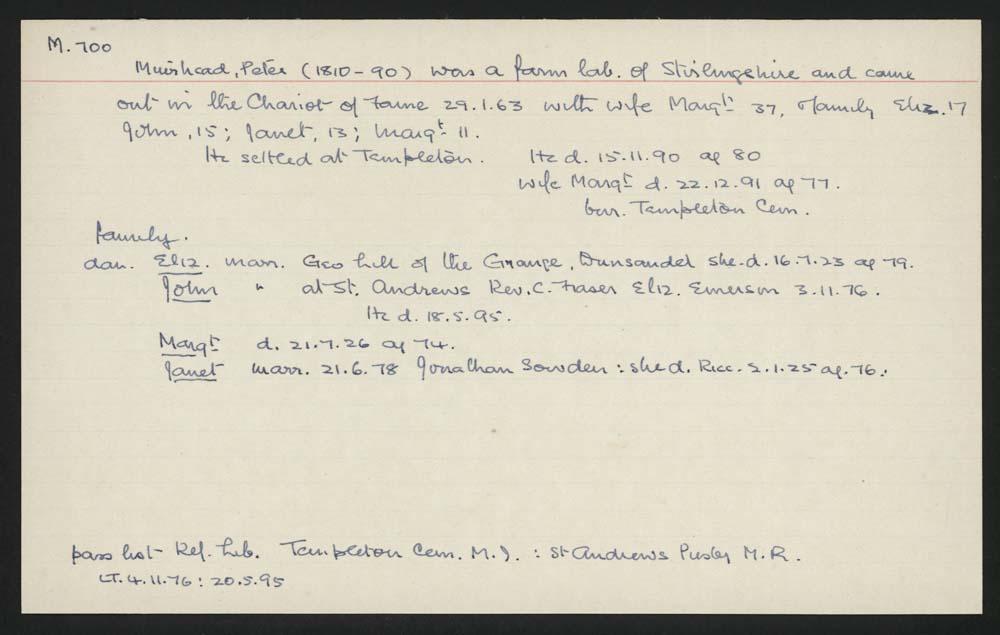 M.700
Muirhead, Peter (1810-90) was a farm lab. of Stirlingshire and came
out in the Chariot of Fame 29.1.63 with wife Margt 37, & family Eliz. 17
John, 15; Janet, 13; Margt 11.
He settled at Templeton. He d. 15.11.90 ag 80
wife Margt d. 22.12.91 ag 77.
bur. Templeton Cem.
family.
dau. Eliz. marr. Geo Hill of the Grange, Dunsandel she.d. 16.7.23 ag 79.
John " at St. Andrews Rev. C. Fraser Eliz. Emerson 3.11.76.
He d. 18.5.95.
Margt d. 21.7.26 ag 74.
Janet marr. 21.6.78 Jonathan Sowden : she d. Ricc. 2.1.25 ag. 76.
pass list Ref. Lib. Templeton Cem. M.I. : St Andrews Presby M.R.
LT. 4.11.76 : 20.5.95